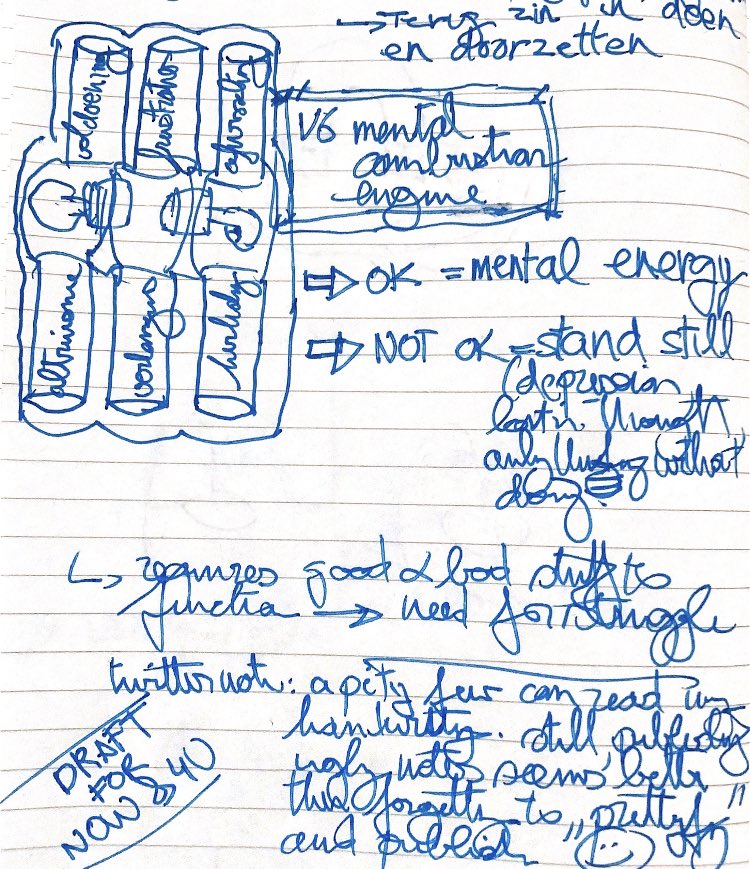 → Terug zin in doen
en doorzetten
voldoening
frustratie
afwisseling
V6 mental
combustion
engine
altruisme
verlangen
⇒ OK = mental energy
⇒ NOT OK = stand still
(depression
lost in thought
only thinking without
doing
↳ requires good & bad stuff to
function → need for struggle
twitter note: a pity few can read my
handwriting. still publishing
ugly notes seems better
than forgetting to "prettyfy"
and publish
DRAFT
FOR
NOW